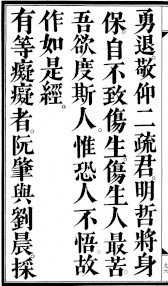 勇退敬仰二疏君。明哲將身
保自不致傷生傷生人最苦
吾欲度斯人。惟恐人不悟故
作如是經。
有等癡癡者。阮肇與劉晨。採